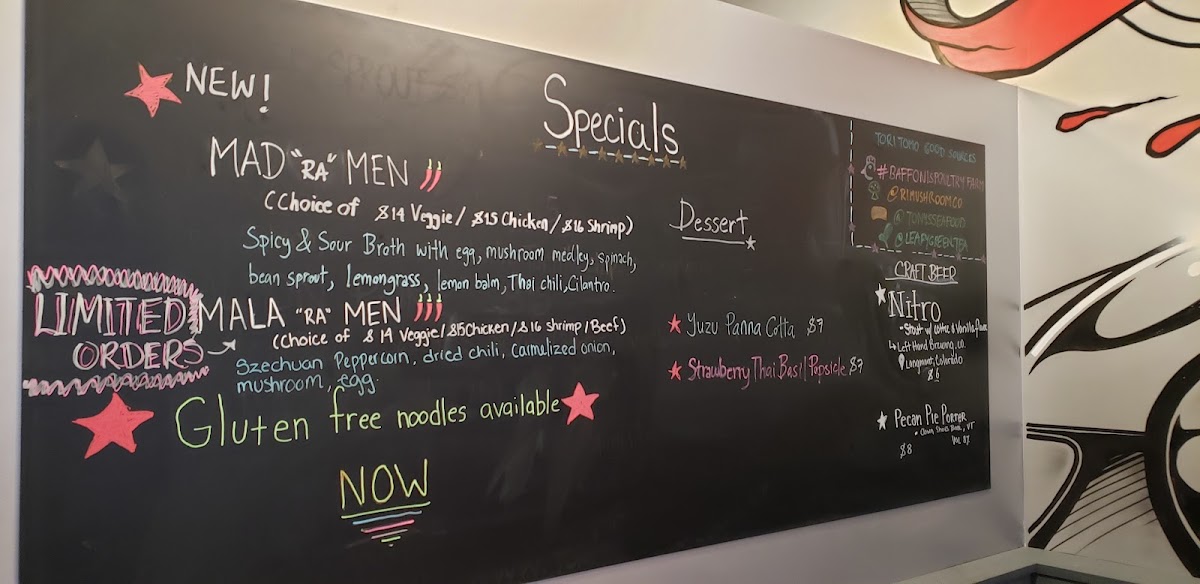 NEW!
Specials
MAD "RA" MEN
(Choice of $14 Veggie / $15 Chicken / $16 Shrimp)
Spicy & Sour Broth with egg, mushroom medley, spinach,
bean sprout, lemongrass, lemon balm, Thai chili, Cilantro.
LIMITED
ORDERS
MALA "RA" MEN
(choice of $14 Veggie / $15 Chicken / $16 shrimp / Beef)
Szechuan Peppercorn, dried chili, Carmelized onion,
mushroom, egg.
Gluten free noodles available
NOW
Dessert
Yuzu Panna Cotta $7
Strawberry Thai Basil Popsicle $7
TORI TOMO GOOD SOURCES
#BAFFONISPOULTRYFARM
@RIMUSHROOMCO
@TONYSSEAFOOD
@LEAFYGREENTEA
CRAFT BEER
Nitro
- Stout w/ coffee & Vanilla flavor
Left Hand Brewing, co.
Longmont, Colorado
$6
PECAN PIE PORTER
VT
$8